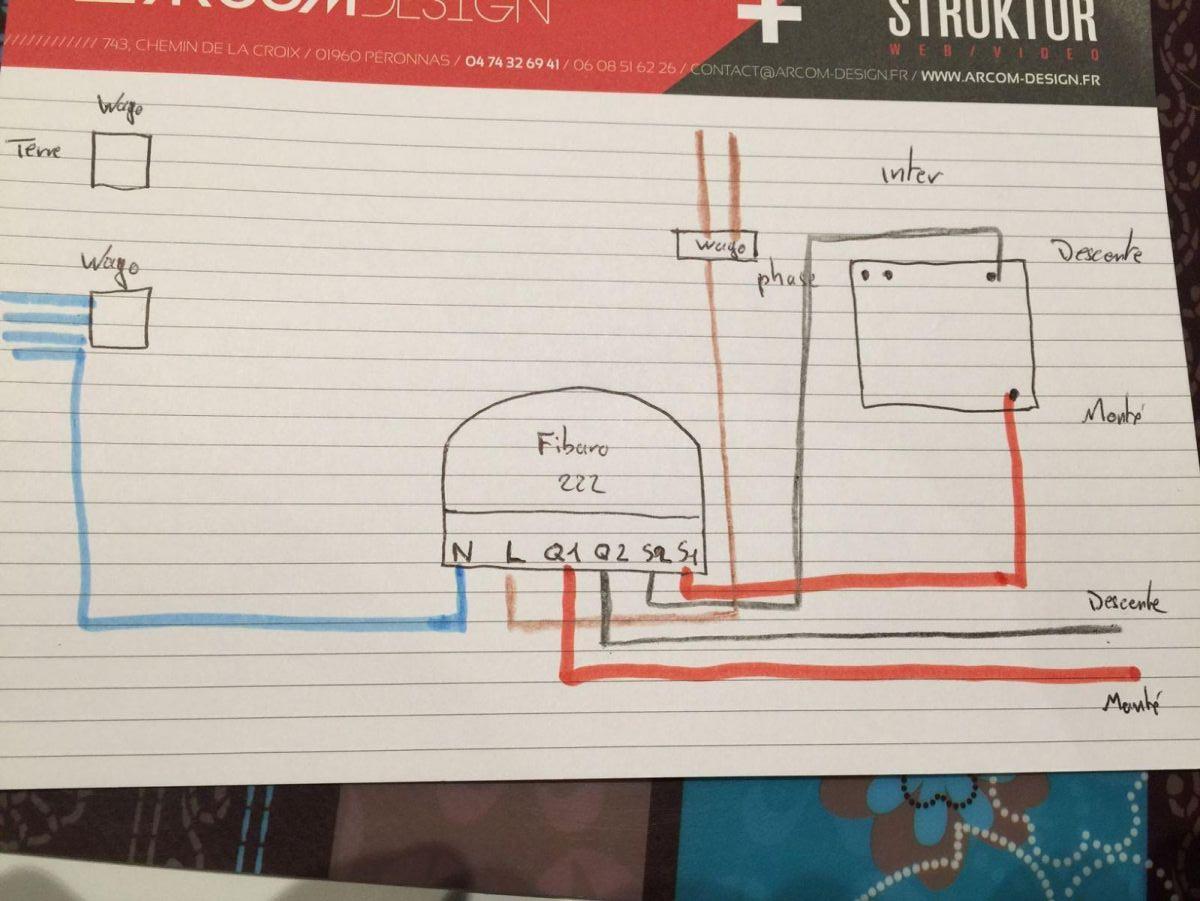 ARCOMDESIGN
STRUKTUR
WEB/VIDEO
////////////// 743, CHEMIN DE LA CROIX / 01960 PÉRONNAS / 04 74 32 69 41 / 06 08 51 62 26 / CONTACT@ARCOM-DESIGN.FR / WWW.ARCOM-DESIGN.FR
Wago
Terre
inter
Wago
wago
phase
Descente
Monté
Fibaro
222
N L Q1 Q2 S2 S1
Descente
Monté